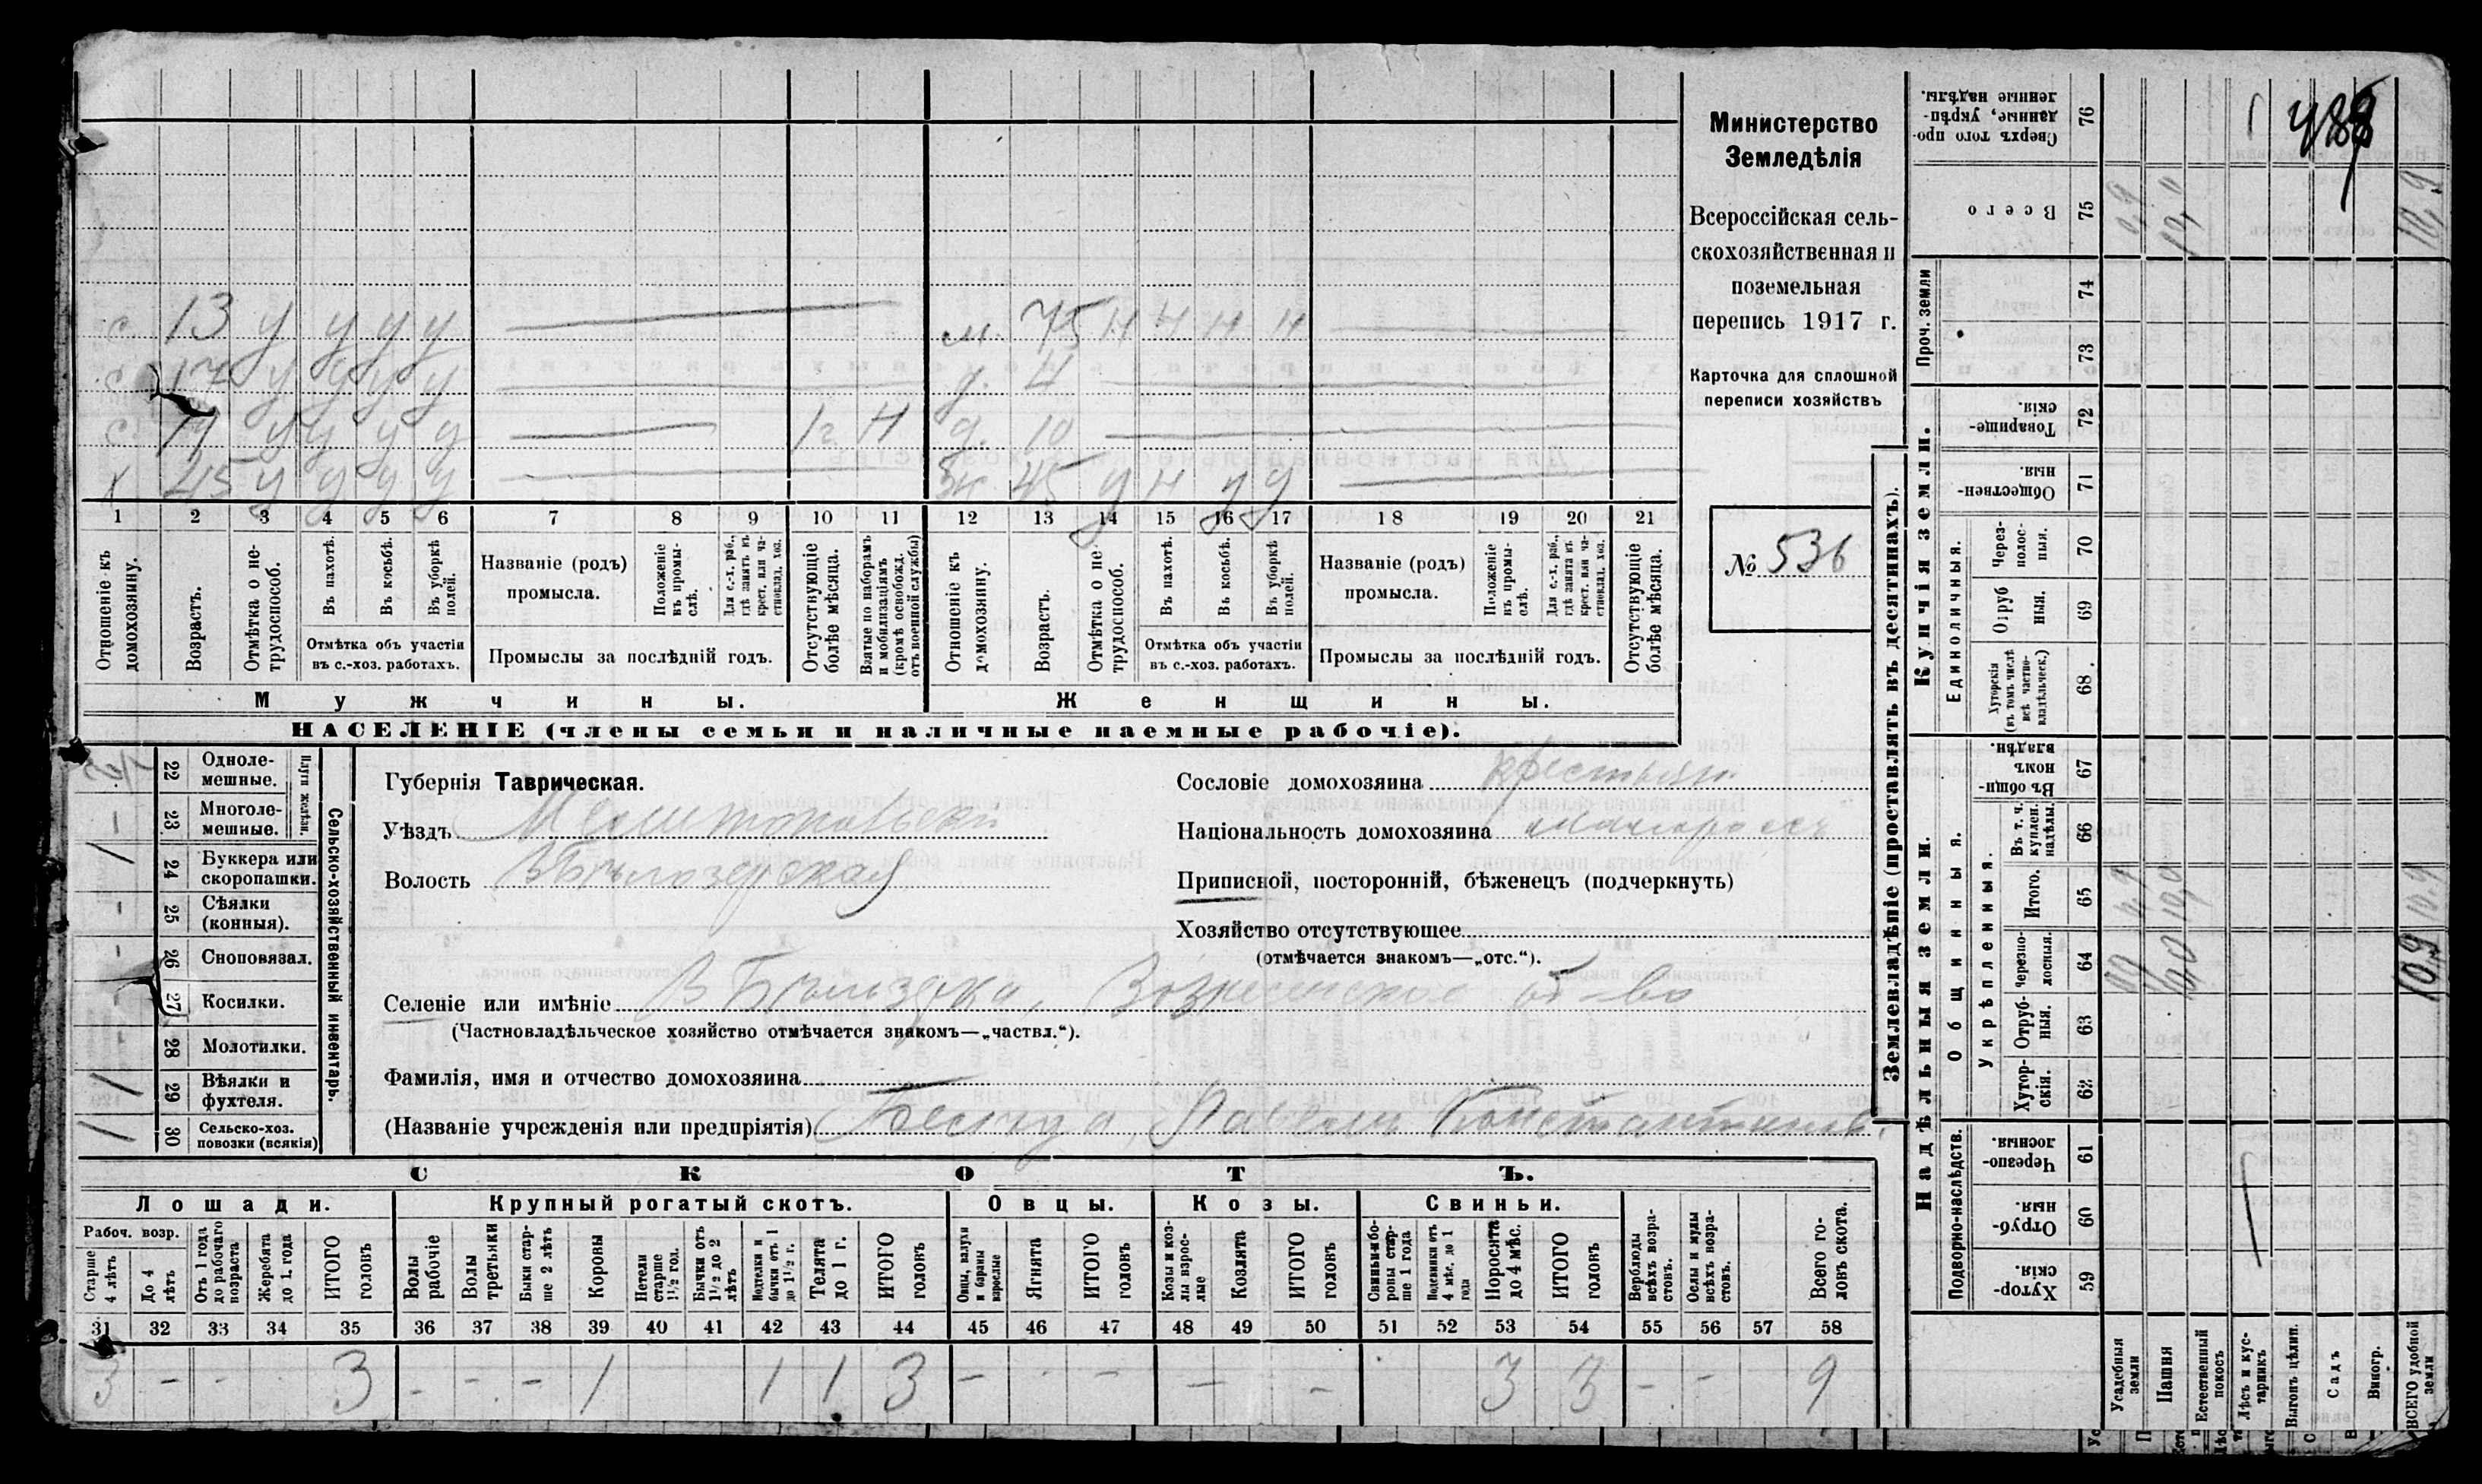 488
Министерство
Земледѣлія
Всероссійская сель-
скохозяйственная и
поземельная
перепись 1917 г.
Карточка для сплошной
переписи хозяйствъ
№ 536
с. 13 у у у у
м. 75 н н н н
с у у у у
д. 4
с. у у у у 1 г н
д. 10
х 45 у у у у
ж. 45 у н у у
1 2 3 4 5 6 7 8 9 10 11 12 13 14 15 16 17 18 19 20 21
Отношеніе къ домохозяину.
Возрастъ.
Отмѣтка о не-трудоспособ.
Въ пахотѣ.
Въ косьбѣ.
Въ уборкѣ полей.
Отмѣтка объ участіи
въ с.-хоз. работахъ.
Названіе (родъ)
промысла.
Положеніе въ промы-слѣ.
Для с.-х. раб., гдѣ занятъ въ крест. или ча-стновлад. хоз.
Промыслы за послѣдній годъ.
Отсутствующіе болѣе мѣсяца.
Взятые по наборамъ и мобилизаціямъ (кромѣ освобожд. отъ военной службы)
Отношеніе къ домохозяину.
Возрастъ.
Отмѣтка о не-трудоспособ.
Въ пахотѣ.
Въ косьбѣ.
Въ уборкѣ полей.
Отмѣтка объ участіи
въ с.-хоз. работахъ.
Названіе (родъ)
промысла.
Положеніе въ промы-слѣ.
Для с.-х. раб., гдѣ занята въ крест. или ча-стновлад. хоз.
Промыслы за послѣдній годъ.
Отсутствующіе болѣе мѣсяца.
Мужчины.
Женщины.
НАСЕЛЕНІЕ (члены семьи и наличные наемные рабочіе).
Сельско-хозяйственный инвентарь.
Плуги желѣзн.
22 Однолемешные.
23 Многолемешные.
24 Буккера или скоропашки. 1
25 Сѣялки (конныя).
26 Сноповязал.
27 Косилки.
28 Молотилки.
29 Вѣялки и фухтеля. 1
30 Сельско-хоз. повозки (всякія) 1
Губернія Таврическая.
Уѣздъ Мелитопольскій
Волость В Бѣлозерская
Сословіе домохозяина крестьян.
Національность домохозяина малороссъ
Приписной, посторонній, бѣженецъ (подчеркнуть)
Хозяйство отсутствующее
(отмѣчается знакомъ—„отс.“).
Селеніе или имѣніе В Бѣлозерка, Вознесенское об-во
(Частновладѣльческое хозяйство отмѣчается знакомъ—„частвл.“).
Фамилія, имя и отчество домохозяина
(Названіе учрежденія или предпріятія) Павелъ Константинов.
СКОТЪ.
Лошади. Крупный рогатый скотъ. Овцы. Козы. Свиньи.
Рабоч. возр.
Старше 4 лѣтъ
До 4 лѣтъ
Отъ 1 года до рабочаго возраста
Жеребята до 1 года
ИТОГО головъ
Волы рабочіе
Волы третьяки
Быки стар-ше 2 лѣтъ
Коровы
Нетели старше 1½ год.
Бычки отъ 1½ до 2 лѣтъ
Подтелки и бычки отъ 1 до 1½ г.
Телята до 1 г.
ИТОГО головъ
Овцы, валухи и бараны взрослые
Ягнята
ИТОГО головъ
Козы и коз-лы взрос-лые
Козлята
ИТОГО головъ
Свиньи и бо-ровы стар-ше 1 года
Подсвинки отъ 4 мѣс. до 1 года
Поросята до 4 мѣс.
ИТОГО головъ
Верблюды всѣхъ возра-стовъ.
Ослы и мулы всѣхъ возра-стовъ.
Всего го-ловъ скота.
31 32 33 34 35 36 37 38 39 40 41 42 43 44 45 46 47 48 49 50 51 52 53 54 55 56 57 58
3 - - 3 - - - 1 1 1 3 - - - - - 3 3 - - 9
Землевладѣніе (проставлять въ десятинахъ).
Надѣльныя земли.
Купчія земли.
Проч. земли
Подворно-наслѣдств.
Общинныя.
Укрѣпленныя.
Единоличныя.
59 Хутор-скія.
60 Отруб-ныя
61 Черезпо-лосныя.
62 Хутор-скія.
63 Отруб-ныя.
64 Черезпо-лосныя.
65 Итого.
66 Въ т. ч. куплен. надѣлы.
67 Въ общи-номъ владѣн.
68 Хуторскія (въ томъ числѣ всѣ частно-владѣльческ.)
69 Отруб ныя.
70 Через-полос-ныя.
71 Обществен-ныя.
72 Товарище-скія.
73
74
75 Всего
76 Сверхъ того про-данные, укрѣп-ленные надѣлы.
Усадебныя земли
Пашня
Естественный покосъ
Лѣсъ и кус-тарникъ
Выгонъ цѣлин.
Садъ
Виногр.
ВСЕГО удобной земли
0,9 10,0 10,9
0,9 10,0 10,9
0,9 10,0 10,9